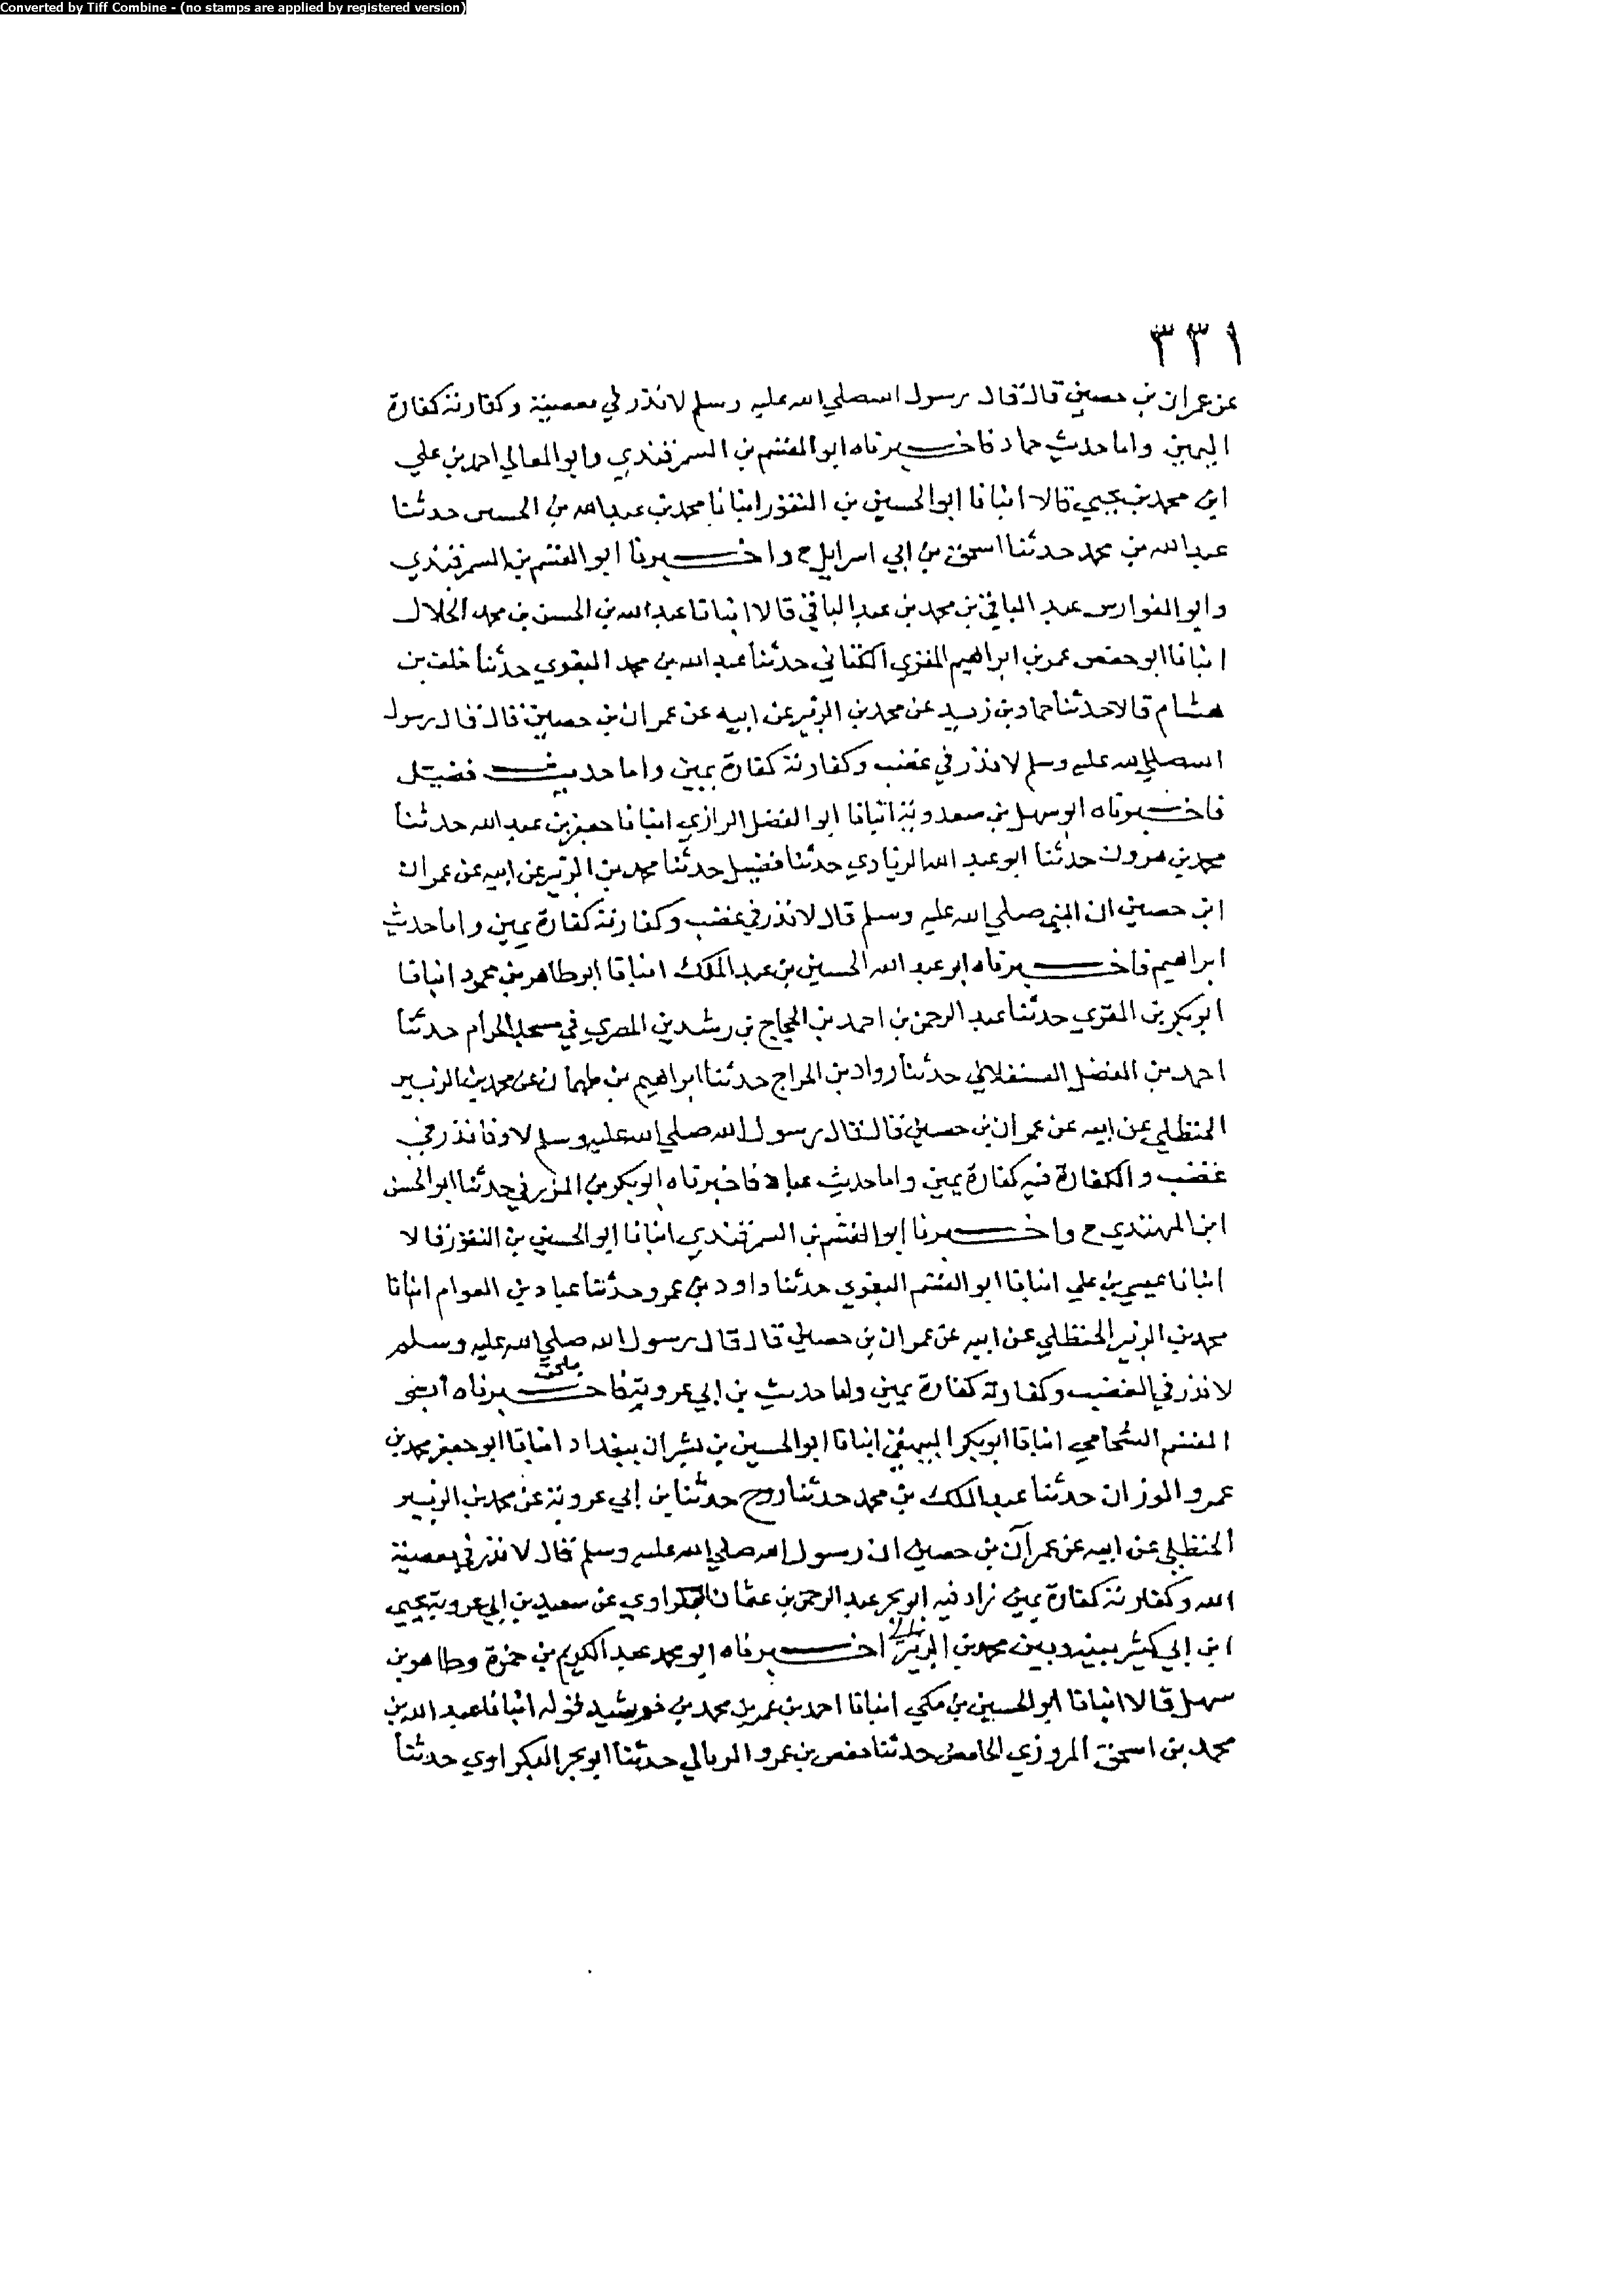 Converted by Tiff Combine - (no stamps are applied by registered version)
٣٣١
عن عمران بن حصين قال قال رسول الله صلي الله عليه وسلم لا نذر في معصية وكفارته كفارة
اليمين واما حديث حماد فاخبرناه ابو القسم بن السمرقندي وابو المعالي احمد بن علي
ابن محمد بن يحيي قالا انبانا ابو الحسين بن النقور انبانا محمد بن عبد الله بن الحسين حدثنا
عبد الله بن محمد حدثنا اسحق بن ابي اسرايل ح واخبرنا ابو القسم بن السمرقندي
وابو الفوارس عبد الباقي بن محمد بن عبد الباقي قالا انبانا عبد الله بن الحسن بن محمد الخلال
انبانا ابو حفص عمر بن ابراهيم المقري الكتاني حدثنا عبد الله بن محمد البغوي حدثنا خلف بن
هشام قالا حدثنا حماد بن زيد عن محمد بن الزبير عن ابيه عن عمران بن حصين قال قال رسول
الله صلي الله عليه وسلم لا نذر في غضب وكفارته كفارة يمين واما حديث فضيل
فاخبرناه ابو سهل بن سعدويه انبانا ابو الفضل الرازي انبانا جعفر بن عبد الله حدثنا
محمد بن هرون حدثنا ابو عبد الله الزيادي حدثنا فضيل حدثنا محمد بن الزبير عن ابيه عن عمران
ابن حصين ان النبي صلي الله عليه وسلم قال لا نذر في غضب وكفارته كفارة يمين واما حديث
ابراهيم فاخبرناه ابو عبد الله الحسين بن عبد الملك انبانا ابو طاهر بن محمود انبانا
ابو بكر بن المقري حدثنا عبد الرحمن بن احمد بن الحجاج بن رشدين المصري في مسجد الحرام حدثنا
احمد بن الفضل العسقلاني حدثنا رواد بن الجراج حدثنا ابراهيم بن طهمان عن محمد بن الزبير
الحنظلي عن ابيه عن عمران بن حصين قال قال رسول الله صلي الله عليه وسلم لا وفا نذر في
غضب والكفارة فيه كفارة يمين واما حديث عباد فاخبرناه ابو بكر بن المزرفي حدثنا ابو الحسن
ابن المهتدي ح واخبرنا ابو القسم بن السمرقندي انبانا ابو الحسين بن النقور قالا
انبانا عيسي بن علي انبانا ابو القسم البغوي حدثنا داود بن عمرو حدثنا عباد بن العوام انبانا
محمد بن الزبير الحنظلي عن ابيه عن عمران بن حصين قال قال رسول الله صلي الله عليه وسلم
لا نذر في الغضب وكفارته كفارة يمين واما حديث بن ابي عروبة فاخبرناه ابو
القسم الشحامي انبانا ابو بكر البيهقي انبانا ابو الحسين بن بشران ببغداد انبانا ابو جعفر محمد بن
عمرو الوزان حدثنا عبد الملك بن محمد حدثنا روح حدثنا بن ابي عروبة عن محمد بن الزبير
الحنظلي عن ابيه عن عمران بن حصين ان رسول الله صلي الله عليه وسلم قال لا نذر في معصية
الله وكفارته كفارة يمين زاد فيه ابو بحر عبد الرحمن بن عثمان البكراوي عن سعيد بن ابي عروبة يحيي
ابن ابي كثير بينه وبين محمد بن الزبير اخبرناه ابو محمد عبد الكريم بن حمزة وطاهر بن
سهل قالا انبانا ابو الحسين بن مكي انبانا احمد بن عمر بن محمد بن خورشيد قوله انبانا عبد الله بن
محمد بن اسحق المروزي الحامض حدثنا حفص بن عمرو الربالي حدثنا ابو بحر البكراوي حدثنا